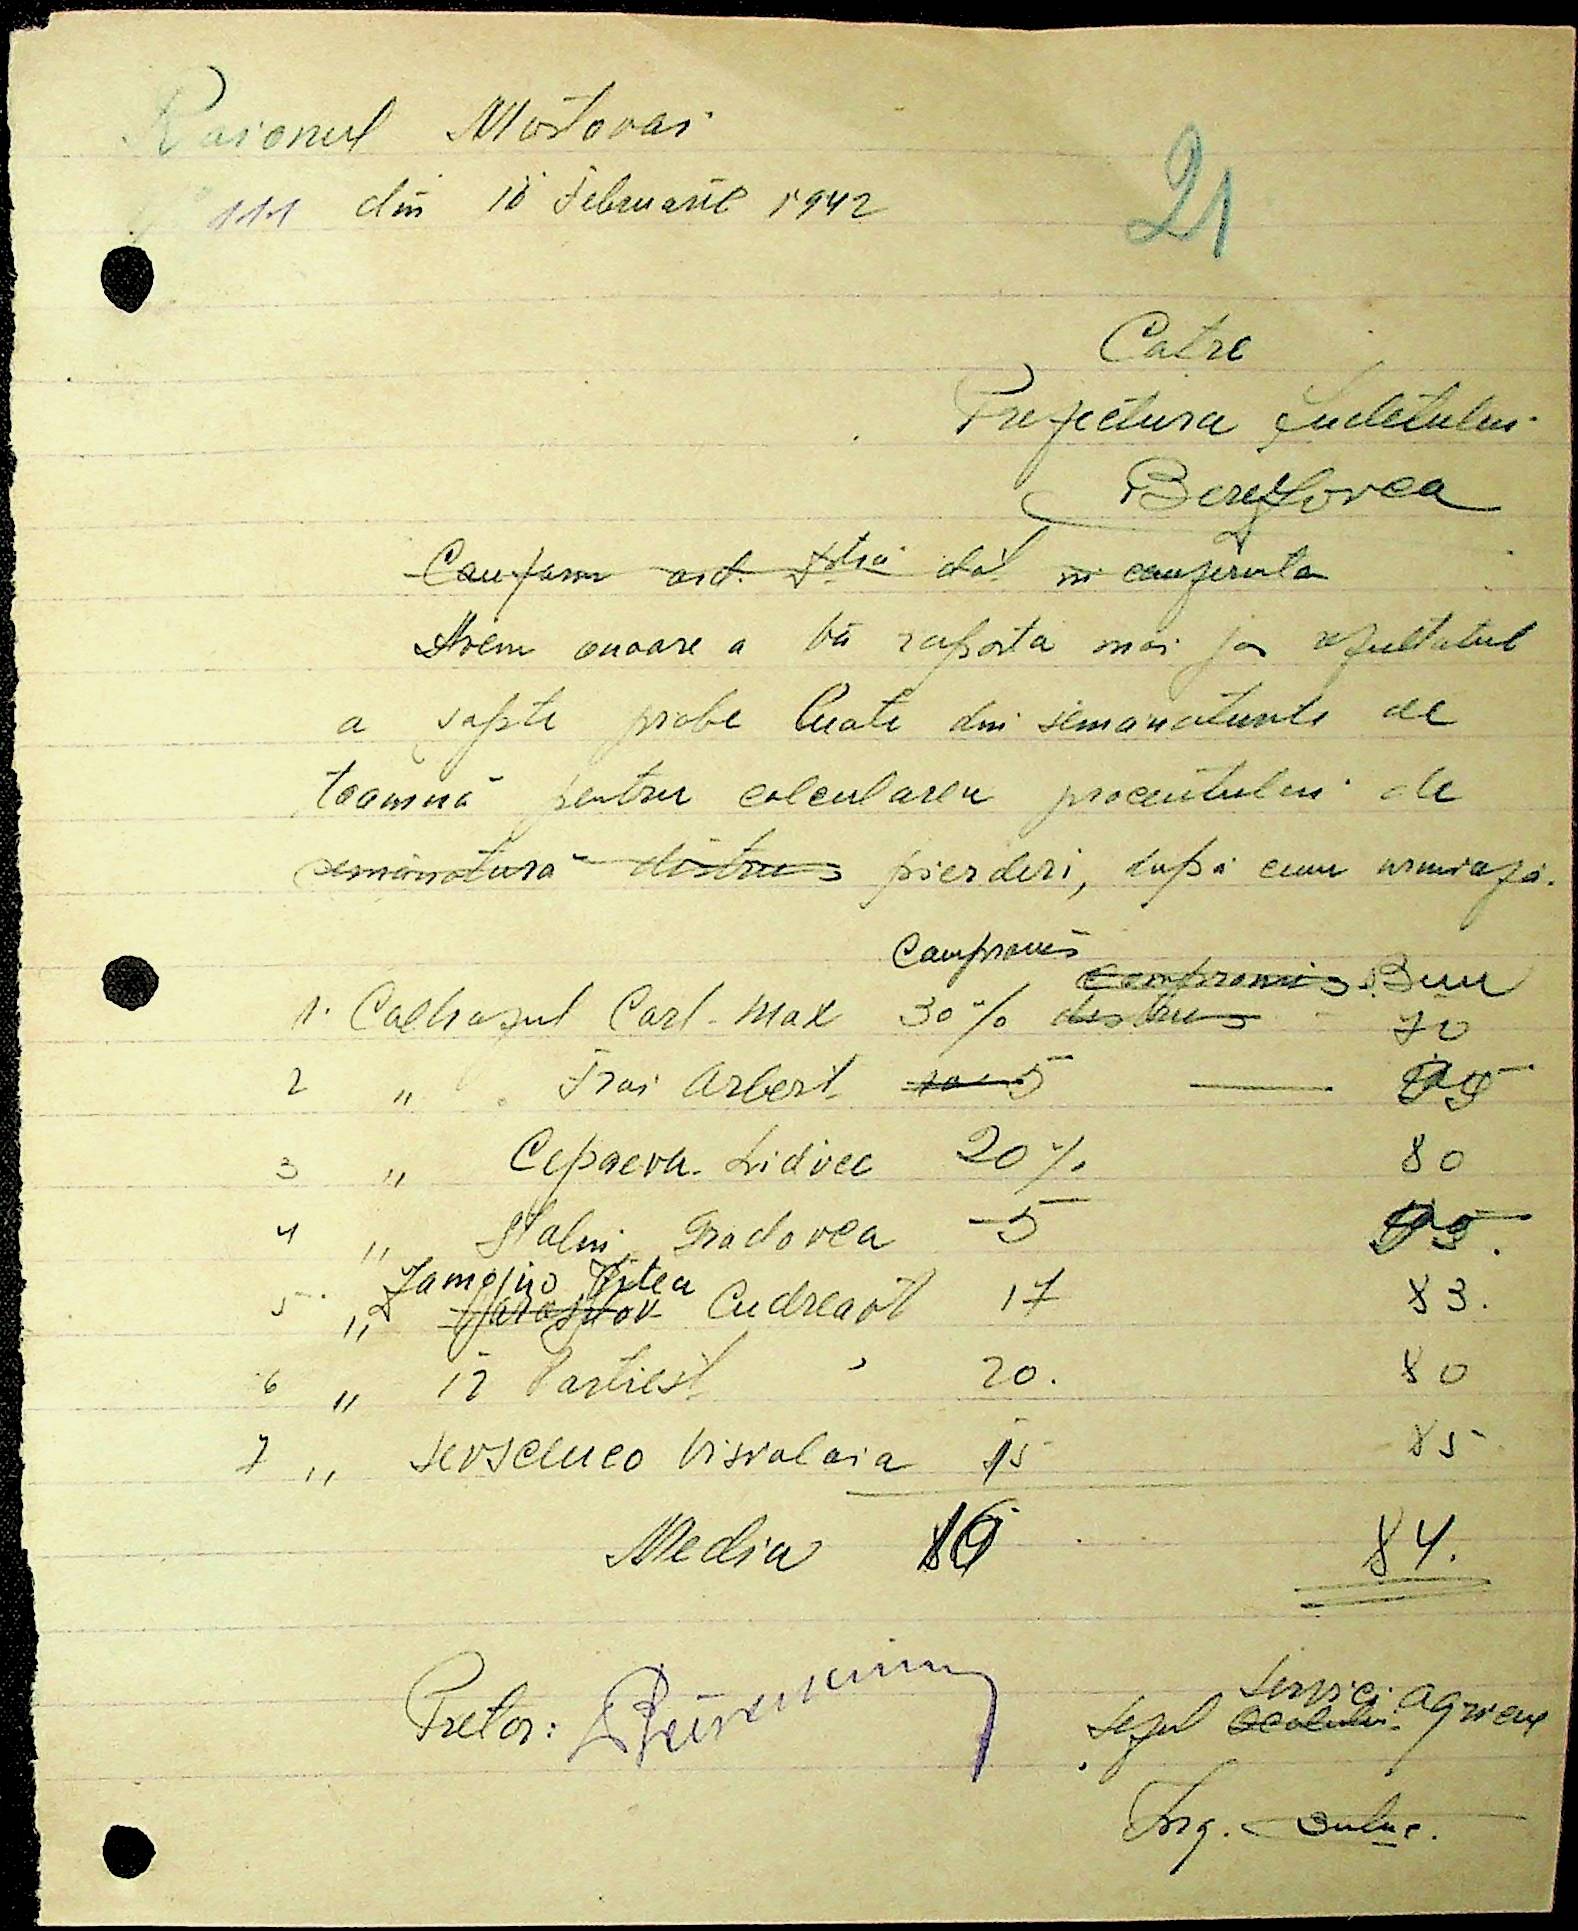 Raionul Mostovoi
111 din 18 Februarie 1942
21
Catre
Prefectura Judetului
Berezovca
Conform ord. Dtră dat in conferinta
Avem onoare a Vă raporta mai jos rezultatul
a sapte probe luate din semanaturile de
toamnă pentru calcularea procentului de
semănătură distrus pierderi, după cum urmiază.
Compromis compromis Bun
1. Colhozul Carl-Max 30% distrus 70
2 " Trai Arbert 5 — 95
3 " Cepaeva Lidvec 20% 80
4 " Stalin Gradovca 5 95.
5 " Zamojno Jitea Cudreavt 17 83.
6 " 17 Partiest 20. 80
7 " Sevscenco Visvolaia 15 85
Media 16 84.
Pretor:
Servici
Seful Ocolului Agricol
Ing.